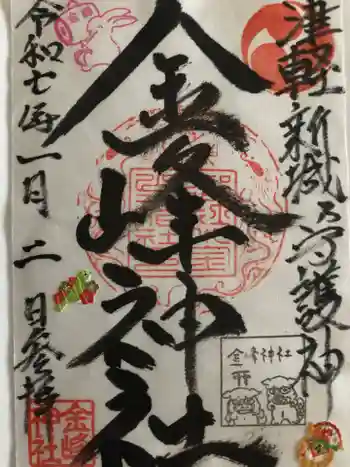 津軽新城乃守護神
金峰神社
令和七年一月二日奉拝
金峰神社
金峰
神社